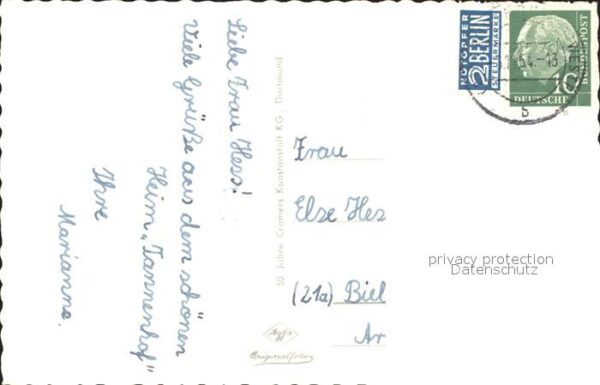 Liebe Frau Hess!
Viele Grüße aus dem schönen
Heim „Tannenhof"
Ihre
Marianne.
50 Jahre Cramers Kunstanstalt KG., Dortmund
NOTOPFER
2 BERLIN
STEUERMARKE
10
DEUTSCHE
BUNDESPOST
54.-18
b
Frau
Else Hes
(21a) Biel
Ar
privacy protection
Datenschutz
Agfa
Originalfoto